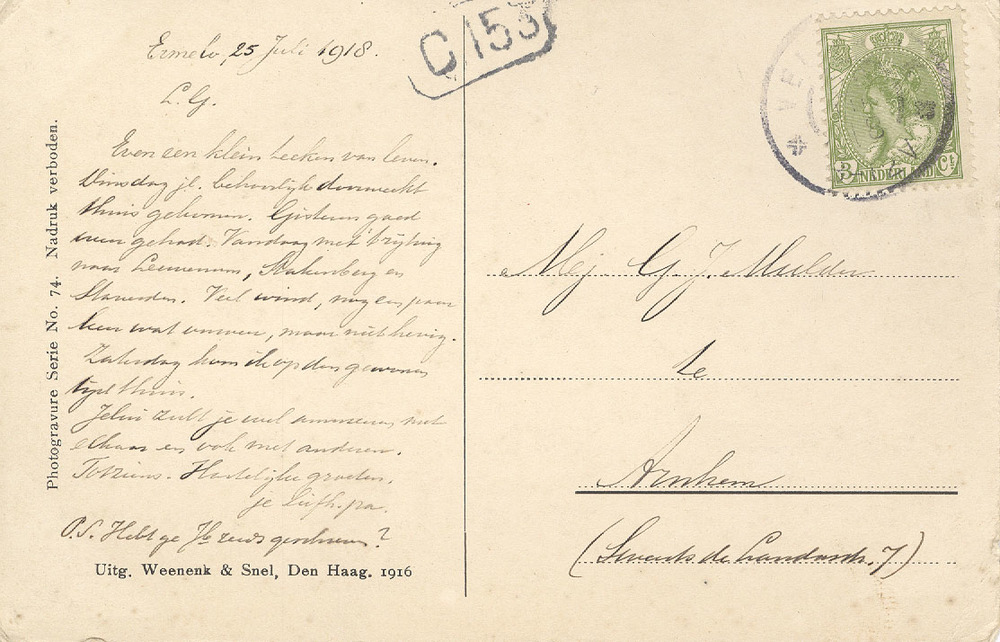 Ermelo, 25 Juli 1918.
L. G.
Even een klein teeken van leven.
Dinsdag jl. behoorlijk doorweekt
thuis gekomen. Gisteren goed
weer gehad. Vandaag met
naar Leuvenum, Stakenberg en
Staverden. Veel wind, nog een paar
keer wat, maar niet hevig.
Zaterdag kom ik op den gewonen
tijd thuis.
zult je wel amuseeren met
elkaar en ook met anderen.
Tot ziens. Hartelijke groeten.
je liefh. pa.
P.S. Hebt ge reeds geschreven?
Uitg. Weenenk & Snel, Den Haag. 1916
Photogravure Serie No. 74. Nadruk verboden.
C 153
3 NEDERLAND Ct
Mej. G. J. Mulder
te
Arnhem
(Sweerts de Landasstr. 7)